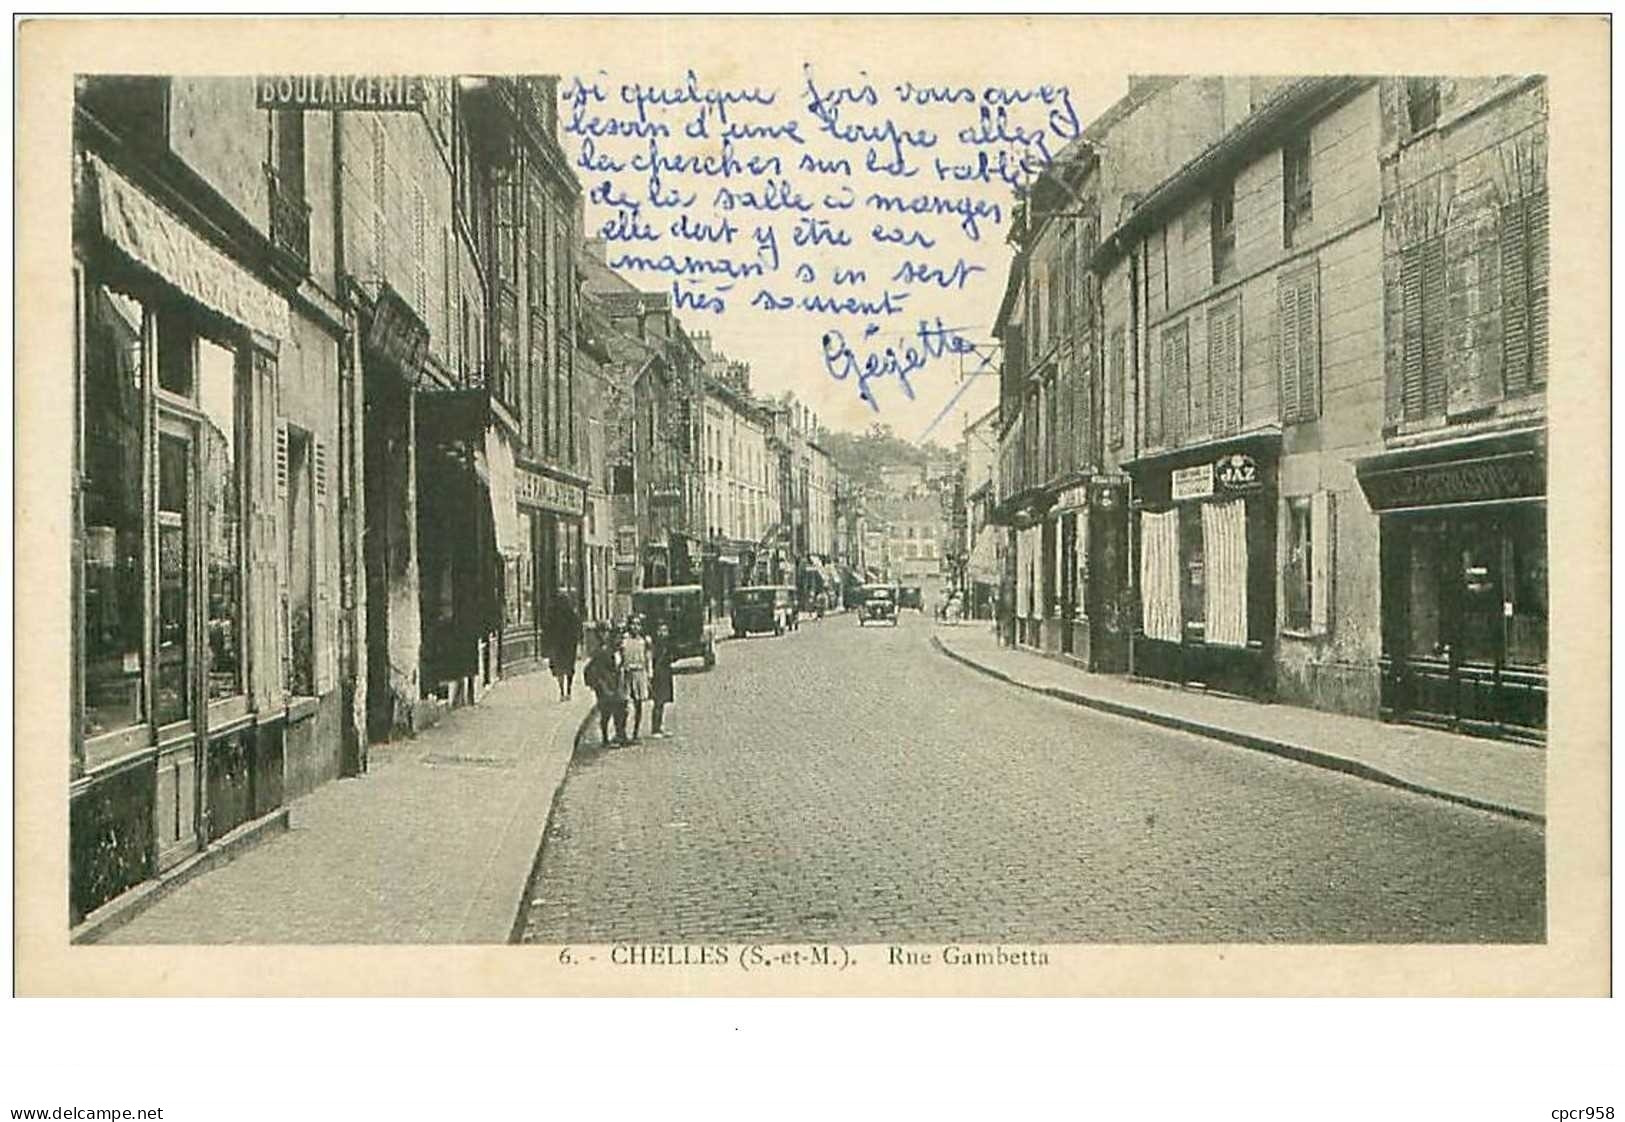 BOULANGERIE
si quelque fois vous avez
besoin d'une loupe allez
la chercher sur la table
de la salle à manger
elle doit y être car
maman s'en sert
très souvent
Gégette
JAZ
6. - CHELLES (S.-et-M.). Rue Gambetta
www.delcampe.net
cpcr958